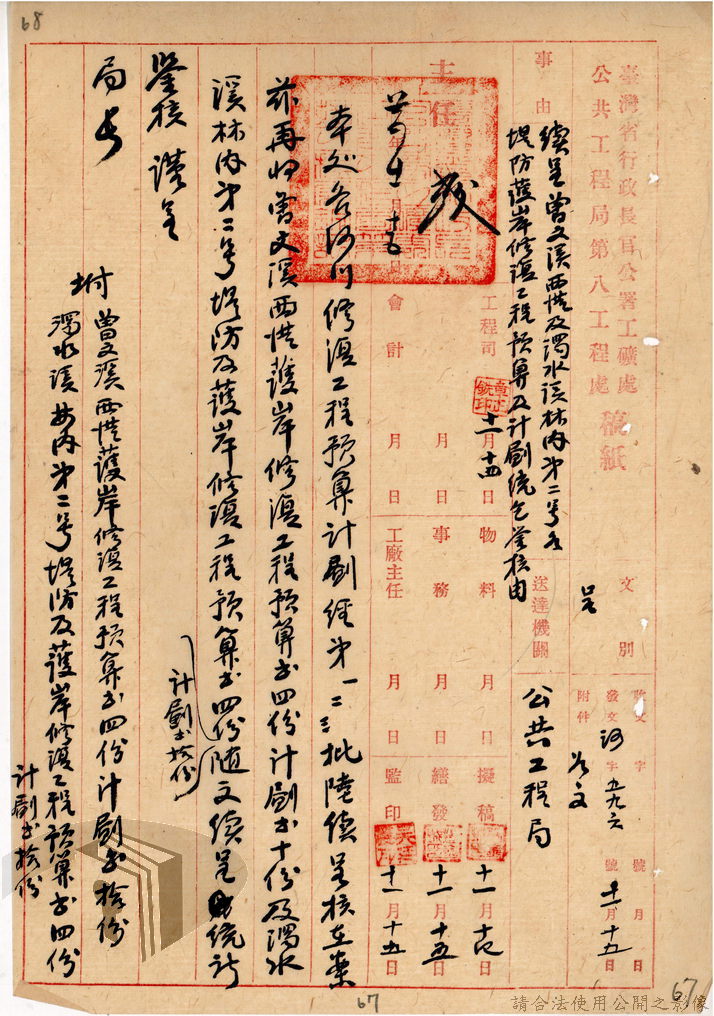 68
臺灣省行政長官公署工礦處
公共工程局第八工程處 稿紙
文別 呈
收文 字 號 月 日
發文 河字五九六號 十一月十五日
附件 如文
事由
續呈曾文溪西港及濁水溪林內第二号
堤防護岸修復工程預算及計劃統乞鑒核由
送達機關 公共工程局
主任
年 月 日
工程司 十一月十四日
會計 月 日
物料 月 日
事務 月 日
工廠主任 月 日
擬稿 十一月 日
繕發 十一月十五日
監印 十一月十五日
本处各河川修復工程預算計劃經第一二三批陸續呈核在案
茲再將曾文溪西港護岸修復工程預算書四份計劃書十份及濁水
溪林內第二号堤防及護岸修復工程預算書四份隨文續呈統祈
計劃書拾份
鑒核 謹呈
局長
附 曾文溪西港護岸修復工程預算書四份計劃書拾份
濁水溪林內第二号堤防及護岸修復工程預算書四份
計劃書拾份
67
67
請合法使用公開之影像